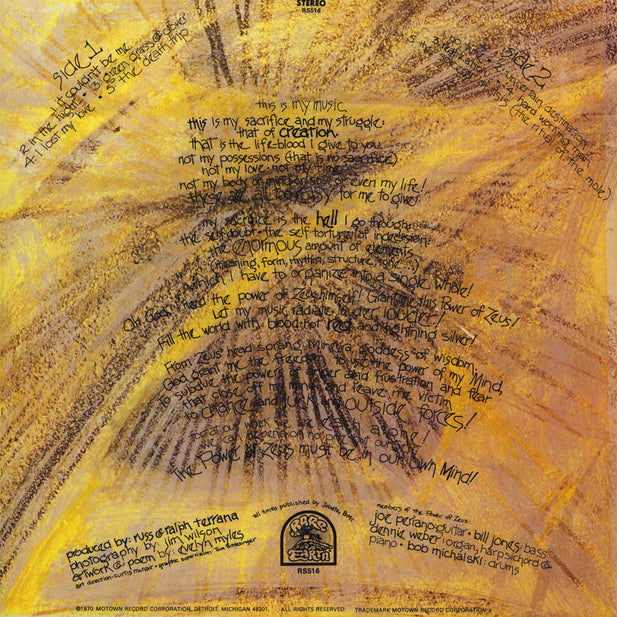 STEREO
RS516
side 1
1. it couldn't be me
2. in the night • 3. green grass & clover
4. i lost my love • 5. the death trip
side 2
1. uncertain destination
4. hard working man
5. (the ritual of the mole)
this is my music.
this is my sacrifice and my struggle:
that of creation.
that is the life-blood I give to you.
not my possessions (that is no sacrifice)
not my love. not my time.
not my body or mind or soul or even my life!
these are all too easy for me to give!
my sacrifice is the hell I go through:
the self doubt • the self torture of indecision:
the enormous amount of elements
(meaning, form, rhythm, structure,
which I have to organize into a single whole!
Oh God! I need the power of Zeus himself! Grant me this Power of Zeus!
Let my music radiate louder, louder!
Fill the world with blood-hot red and lightning silver!
From Zeus' head sprang Minerva, goddess of wisdom.
God grant me the freedom to use the power of my Mind,
to subdue the power of anger and frustration and fear
that close off my mind and leave me victim
to chance and luck and outside forces!
we are each alone!
The Power of Zeus must be in our own Mind!
produced by: russ & ralph terrana
photography by: jim wilson
artwork & poem by: evelyn myles
all tunes published by Jobete, BMI
RARE
EARTH
RS516
members of the Power of Zeus:
joe periano: guitar • bill jones: bass
dennie weber: organ, harpsichord &
piano • bob michalski: drums
©1970 MOTOWN RECORD CORPORATION, DETROIT, MICHIGAN 48201. ALL RIGHTS RESERVED TRADEMARK MOTOWN RECORD CORPORATION